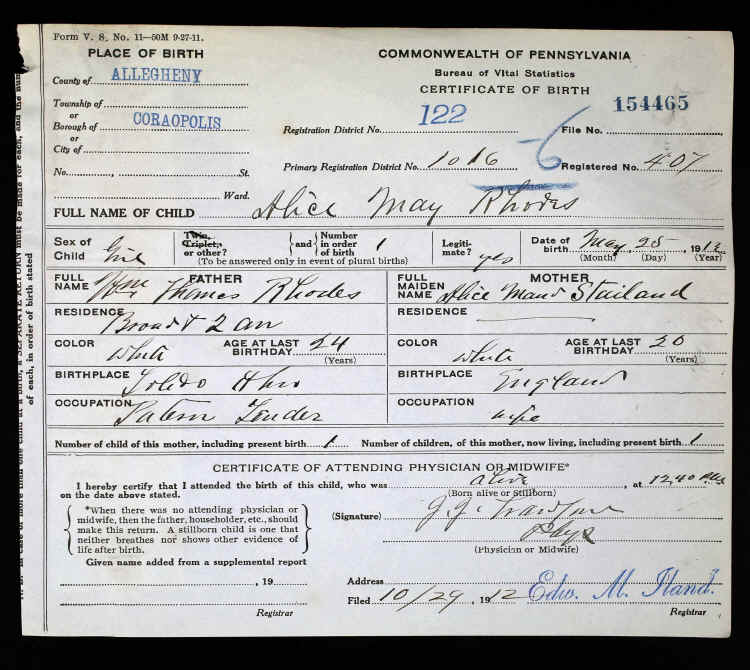 Form V. S. No. 11—50M 9-27-11.
PLACE OF BIRTH
County of ALLEGHENY
Township of
or
Borough of CORAOPOLIS
or
City of
No. , St.
Ward.
COMMONWEALTH OF PENNSYLVANIA
Bureau of Vital Statistics
CERTIFICATE OF BIRTH
Registration District No. 122
File No. 154465
Primary Registration District No. 1016
-6
Registered No. 407
FULL NAME OF CHILD Alice May Rhodes
Sex of Child Girl
Twin, Triplet, or other? { and } Number in order of birth 1
(To be answered only in event of plural births)
Legitimate? yes
Date of birth May 25 1912
(Month) (Day) (Year)
FATHER
FULL NAME Wm Thomas Rhodes
MOTHER
FULL MAIDEN NAME Alice Maud
RESIDENCE Broad &
RESIDENCE
COLOR White
AGE AT LAST BIRTHDAY 24
(Years)
COLOR White
AGE AT LAST BIRTHDAY 20
(Years)
BIRTHPLACE Toledo Ohio
BIRTHPLACE England
OCCUPATION
OCCUPATION wife
Number of child of this mother, including present birth 1
Number of children, of this mother, now living, including present birth 1
CERTIFICATE OF ATTENDING PHYSICIAN OR MIDWIFE*
I hereby certify that I attended the birth of this child, who was alive, at 12.40 P.M.
on the date above stated.
(Born alive or Stillborn)
*When there was no attending physician or
midwife, then the father, householder, etc., should
make this return. A stillborn child is one that
neither breathes nor shows other evidence of
life after birth.
(Signature) J. J.
Phys
(Physician or Midwife)
Given name added from a supplemental report
, 19
Registrar
Address
Filed 10/29 1912 Edw. M.
Registrar
of each, in order of birth stated